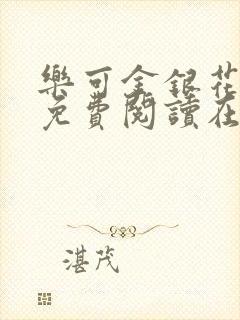 樂可金銀花
免費閱讀在
湛茂